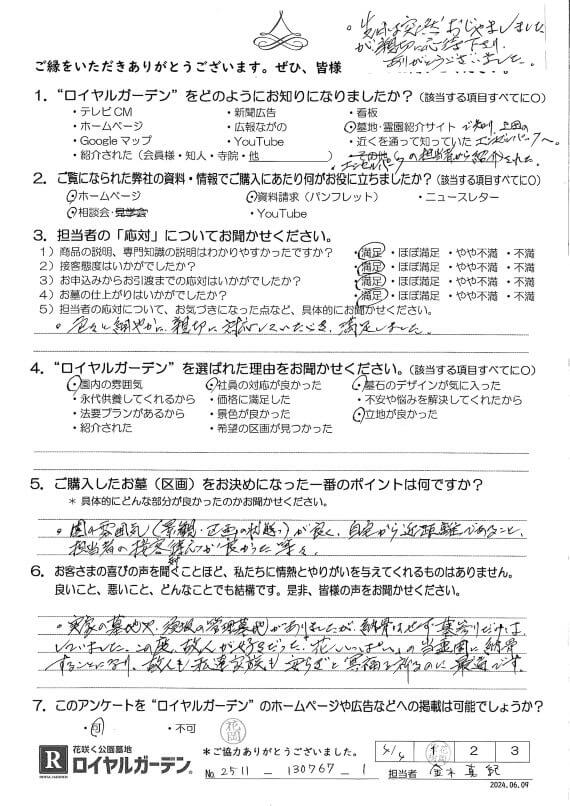 。先日は突然おじゃましました
が親切に応待下さり、
ありがとうございました。
ご縁をいただきありがとうございます。ぜひ、皆様
1. “ロイヤルガーデン”をどのようにお知りになりましたか？(該当する項目すべてに○)
・テレビCM ・新聞広告 ・看板
・ホームページ ・広報ながの ・墓地・霊園紹介サイト で知り、
・Googleマップ ・YouTube ・近くを通って知っていた エンゼルパークへ。
・紹介された（会員様・知人・寺院・他 ） ・その他
エンゼルパークの担当者から紹介された。
2. ご覧になられた弊社の資料・情報でご購入にあたり何がお役に立ちましたか？(該当する項目すべてに○)
・ホームページ ・資料請求（パンフレット） ・ニュースレター
・相談会・見学会 ・YouTube
3. 担当者の「応対」についてお聞かせください。
1）商品の説明、専門知識の説明はわかりやすかったですか？ ・満足 ・ほぼ満足 ・やや不満 ・不満
2）接客態度はいかがでしたか？ ・満足 ・ほぼ満足 ・やや不満 ・不満
3）お申込みからお引渡までの応対はいかがでしたか？ ・満足 ・ほぼ満足 ・やや不満 ・不満
4）お墓の仕上がりはいかがでしたか？ ・満足 ・ほぼ満足 ・やや不満 ・不満
5）担当者の応対について、お気づきになった点など、具体的にお聞かせください。
。色々と細やかに、親切に対応していただき、満足しました。
4. “ロイヤルガーデン”を選ばれた理由をお聞かせください。(該当する項目すべてに○)
・園内の雰囲気 ・社員の対応が良かった ・墓石のデザインが気に入った
・永代供養してくれるから ・価格に満足した ・不安や悩みを解決してくれたから
・法要プランがあるから ・景色が良かった ・立地が良かった
・紹介された ・希望の区画が見つかった
5. ご購入したお墓（区画）をお決めになった一番のポイントは何ですか？
＊具体的にどんな部分が良かったのかお聞かせください。
。園の雰囲気（景観・区画の状態）が良く、自宅から近距離であること、
担当者の接客 が良かった 等々。
6. お客さまの喜びの声を聞くことほど、私たちに情熱とやりがいを与えてくれるものはありません。
良いこと、悪いこと、どんなことでも結構です。是非、皆様の声をお聞かせください。
。実家の墓地や、 の管理墓地がありましたが、納骨はせず墓参りだけは
していました。この度、故人が好きだった「花いっぱい」の当霊園に納骨
することになり、故人も私達家族も 冥福を祈るのに最適です。
7. このアンケートを“ロイヤルガーデン”のホームページや広告などへの掲載は可能でしょうか？
・可 ・不可 花岡
R
ROYAL GARDEN
花咲く公園墓地
ロイヤルガーデン®
＊ご協力ありがとうございました。
No 2511 - 130767 - 1
4/4 1 2 3
担当者 金 真紀
2024.06.09